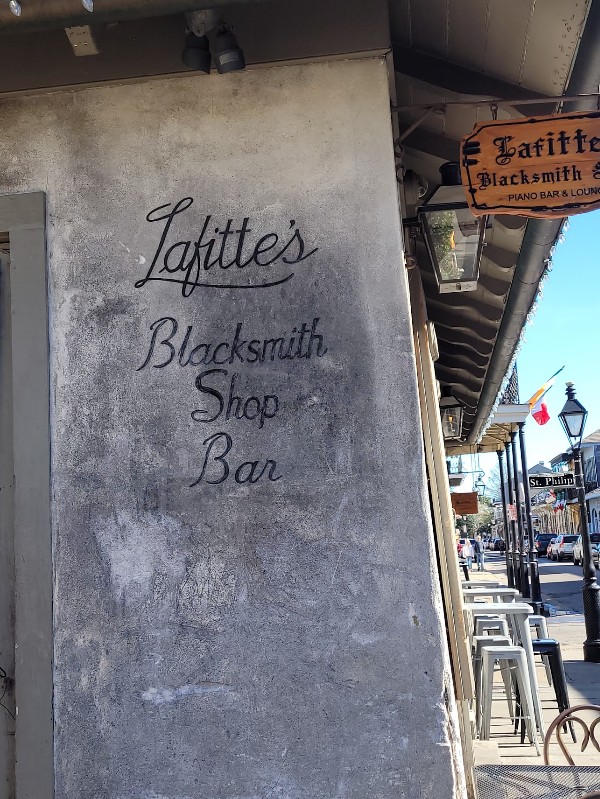 Lafitte's
Blacksmith
Shop
Bar
Lafitte
Blacksmith S
PIANO BAR & LOUNG
St. Philip